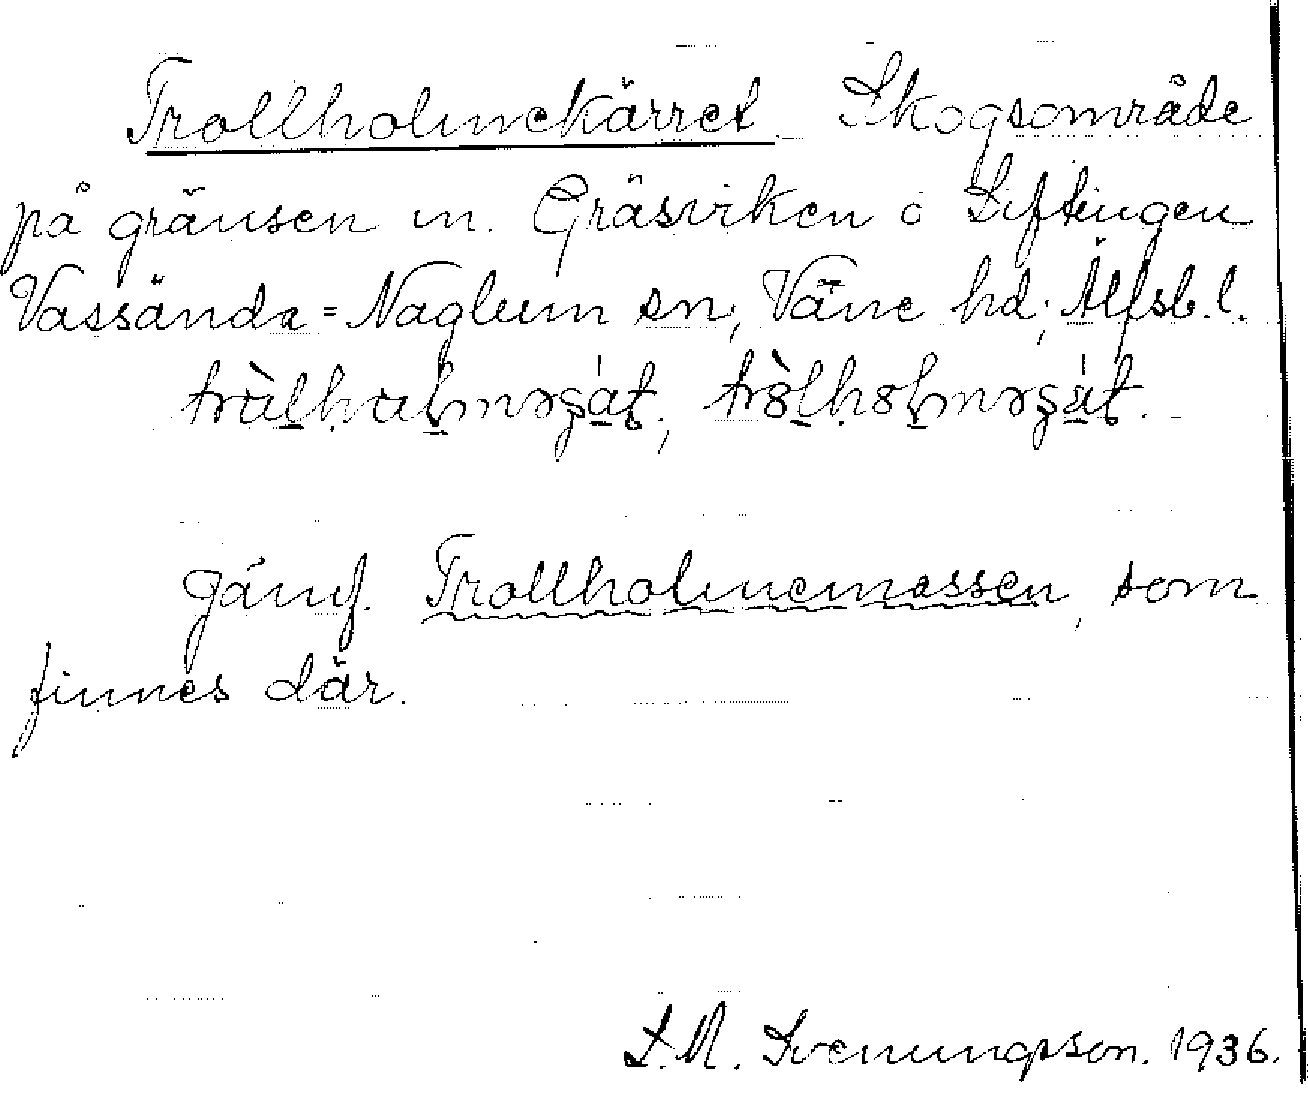 Trollholmekärret. Skogsområde
på gränsen m. Gräsviken o Siftingen
Vassända=Naglum sn; Väne hd; Älfsb. l.
Jämf. Trollholmemossen, som
finnes där.
S. M. Svenungsson. 1936.